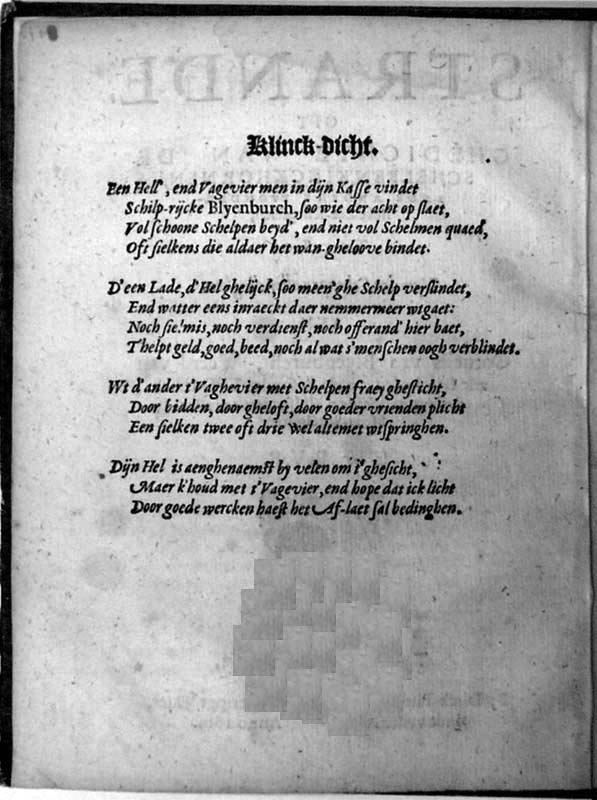 Klinck-dicht.
Een Hell', end Vagevier men in dijn Kasse vindet
Schilp-rijcke Blyenburch, soo wie der acht op slaet,
Vol schoone Schelpen beyd', end niet vol Schelmen quaed,
Oft sielkens die aldaer het wan-gheloove bindet.
D'een Lade, d'Hel ghelijck, soo meen'ghe Schelp verslindet,
End watter eens inraeckt daer nemmermeer wtgaet:
Noch sielmis, noch verdienst, noch offerand' hier baet,
T'helpt geld, goed, beed, noch al wat s'menschen oogh verblindet.
Wt d'ander t'Vaghevier met Schelpen fraey ghesticht,
Door bidden, door gheloft, door goeder vrienden plicht
Een sielken twee oft drie wel altemet wtspringhen.
Dijn Hel is aenghenaemst by velen om t'ghesicht,
Maer k'houd met t'Vagevier, end hope dat ick licht
Door goede wercken haest het Af-laet sal bedinghen.
STRANDE